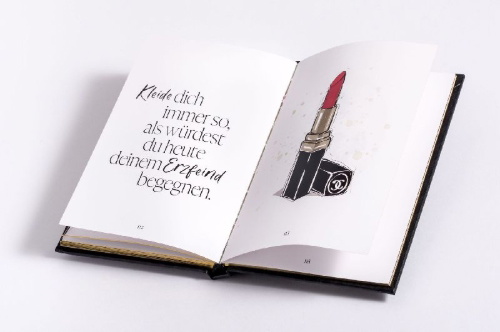 Kleide dich
immer so,
als würdest
du heute
deinem Erzfeind
begegnen.